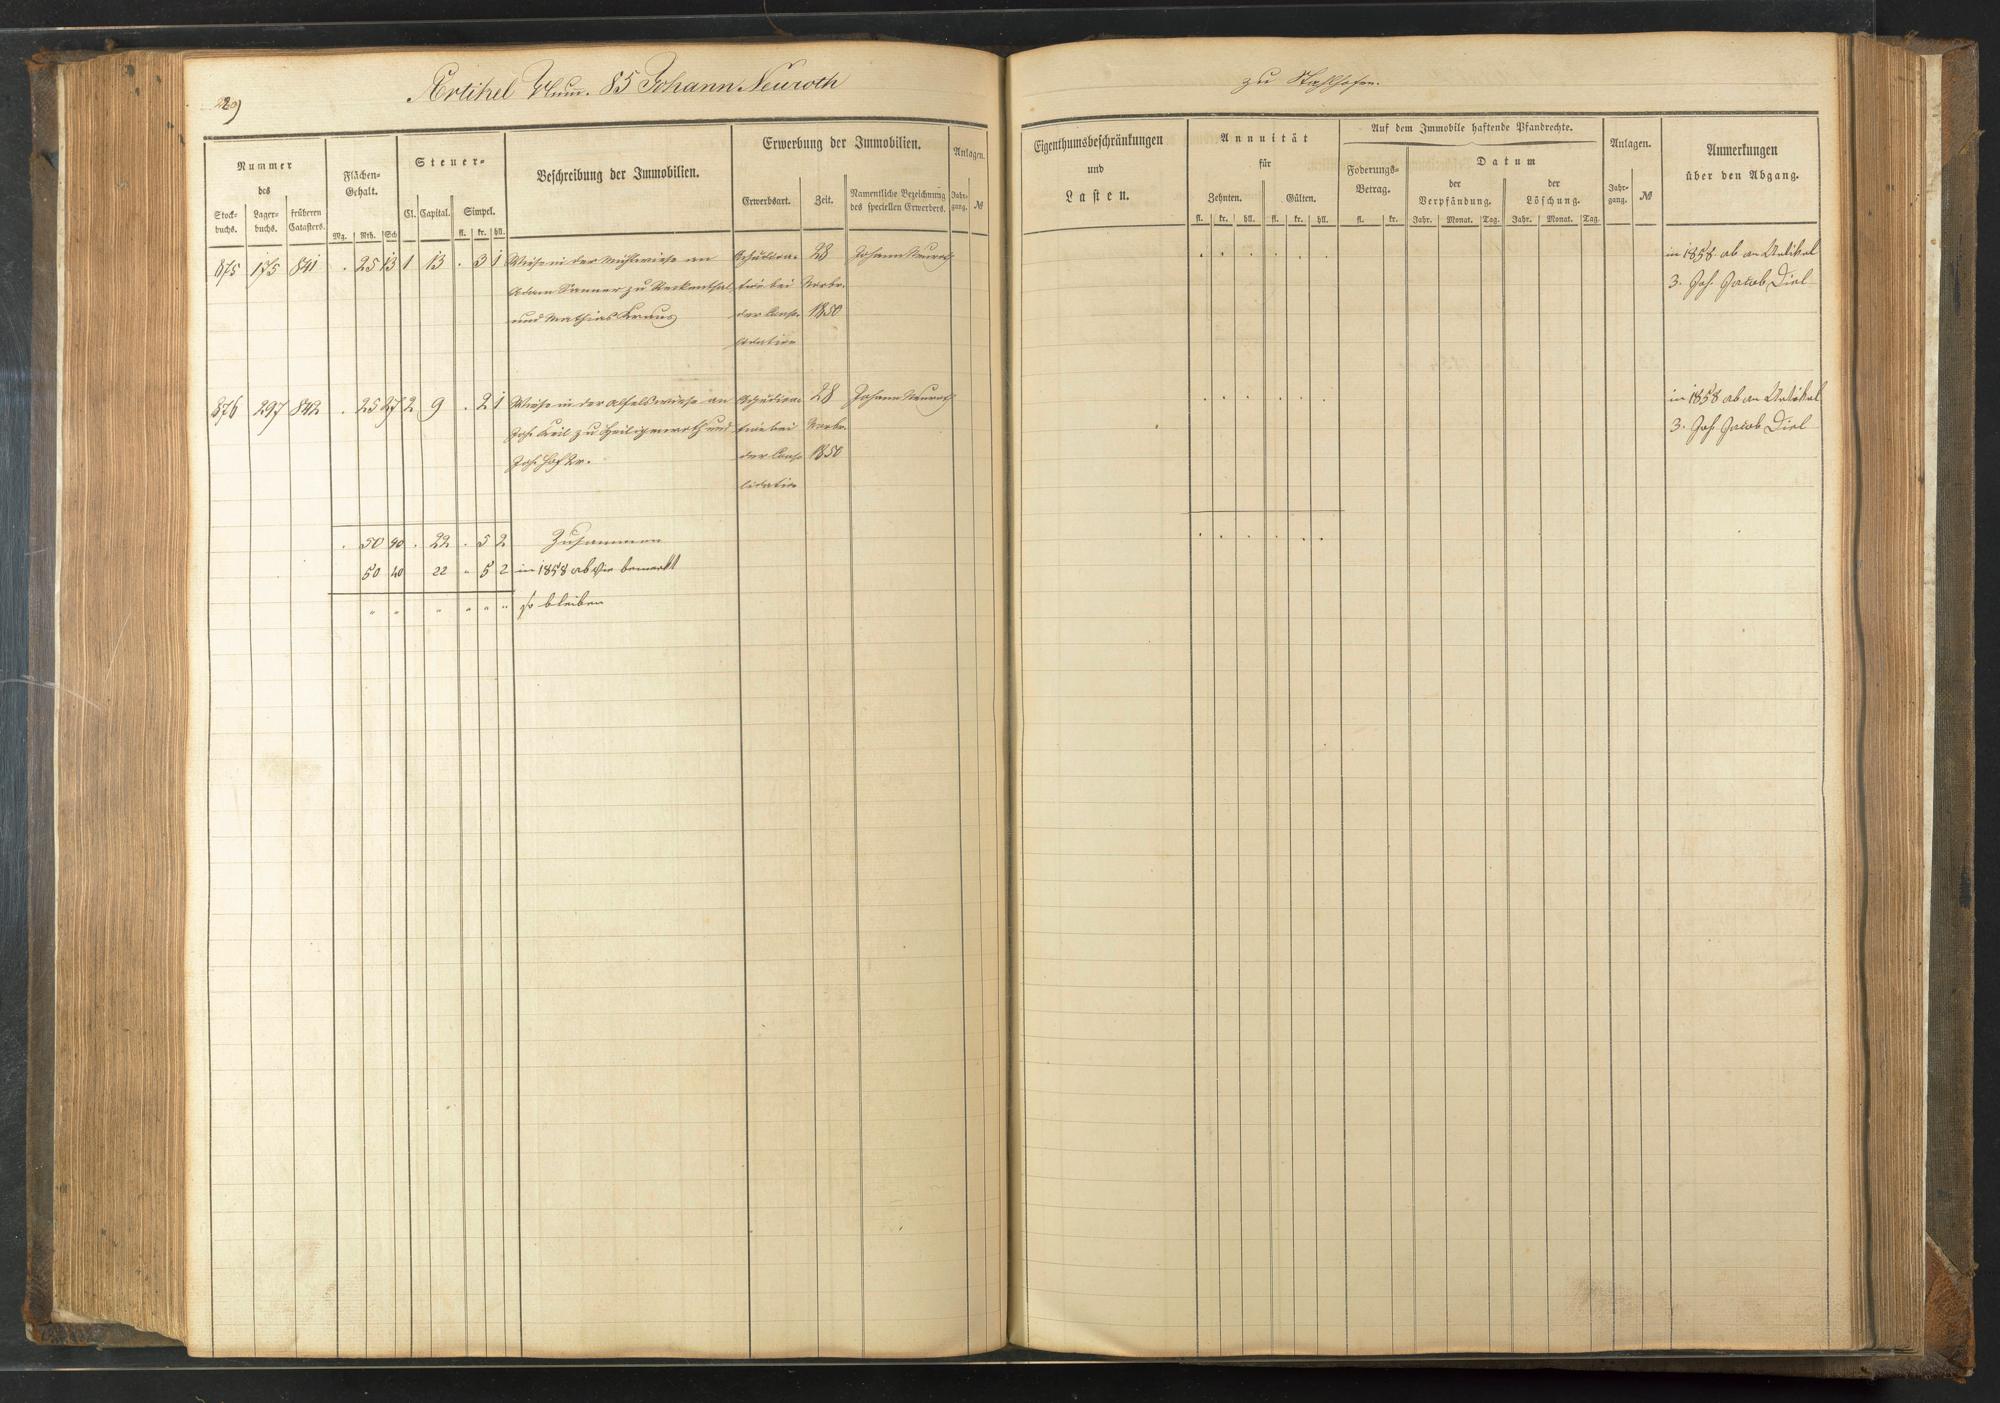 229)
Artikel Num. 85 Johann Neuroth
zu Stahlhofen.
Nummer
des
Stock-
buchs.
Lager-
buchs.
früheren
Catasters.
Flächen-
Gehalt.
Mg. Rth. Sch
Steuer-
Cl. Capital. Simpel.
fl. kr. hll.
Beschreibung der Immobilien.
Erwerbung der Immobilien.
Erwerbsart. Zeit.
Namentliche Bezeichnung
des speciellen Erwerbers.
Anlagen.
Jahr-
gang. №
Eigenthumsbeschränkungen
und
Lasten.
Annuität
für
Zehnten. Gülten.
fl. kr. hll. fl. kr. hll.
Auf dem Immobile haftende Pfandrechte.
Foderungs-
Betrag.
fl. kr.
Datum
der
Verpfändung.
der
Löschung.
Jahr. Monat. Tag. Jahr. Monat. Tag.
Anlagen.
Jahr-
gang. №
Anmerkungen
über den Abgang.
875 175 841 . 25 13 1 13 . 3 1 Wiese in der Mühlwiese an 28 Johann Neuroth in 1858 ab an Artikel
Adam Sanner zu Reckenthal bei Novbr. 3. Joh. Jacob Diel
und Mathias Kraus der Conso- 1850
lidation
876 297 842 . 25 27 2 9 . 2 1 Wiese in der an 28 Johann Neuroth in 1858 ab an Artikel
Joh. Keil zu Heiligenroth und bei Novbr. 3. Joh. Jacob Diel
Joh. der Conso- 1850
lidation
. 50 40 . 22 . 5 2 Zusammen
50 40 22 " 5 2 in 1858 ab wie bemerkt
" " " " " " so bleiben